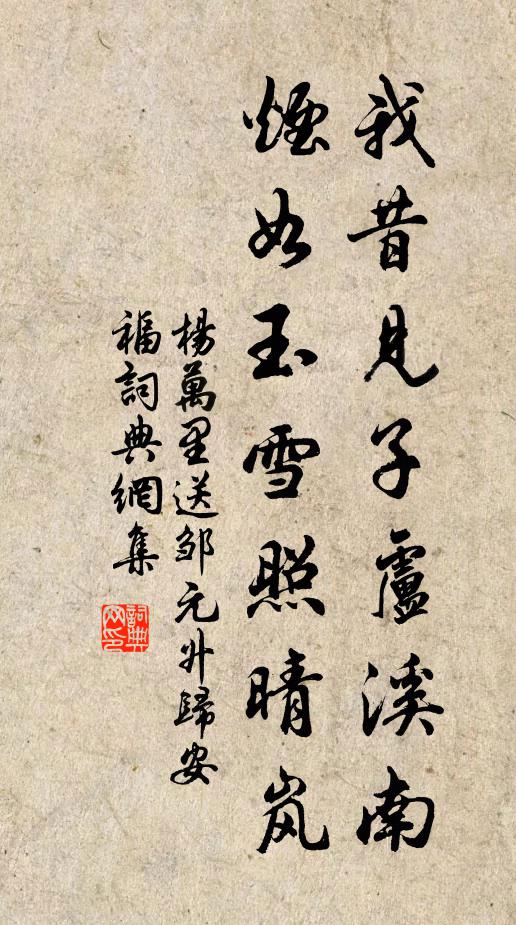 我昔見子盧溪南
煙如玉雪照晴岚
楊萬里送邹元升歸安
福詞典網集
詞典
网印